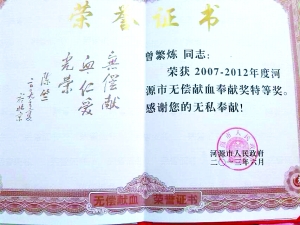 荣誉证书
无偿献
血仁爱
光荣
曾繁炼 同志:
荣获 2007-2012年度河
源市无偿献血奉献奖特等奖。
感谢您的无私奉献!
河源市人民政府
二〇一三年六月
无偿献血 荣誉证书